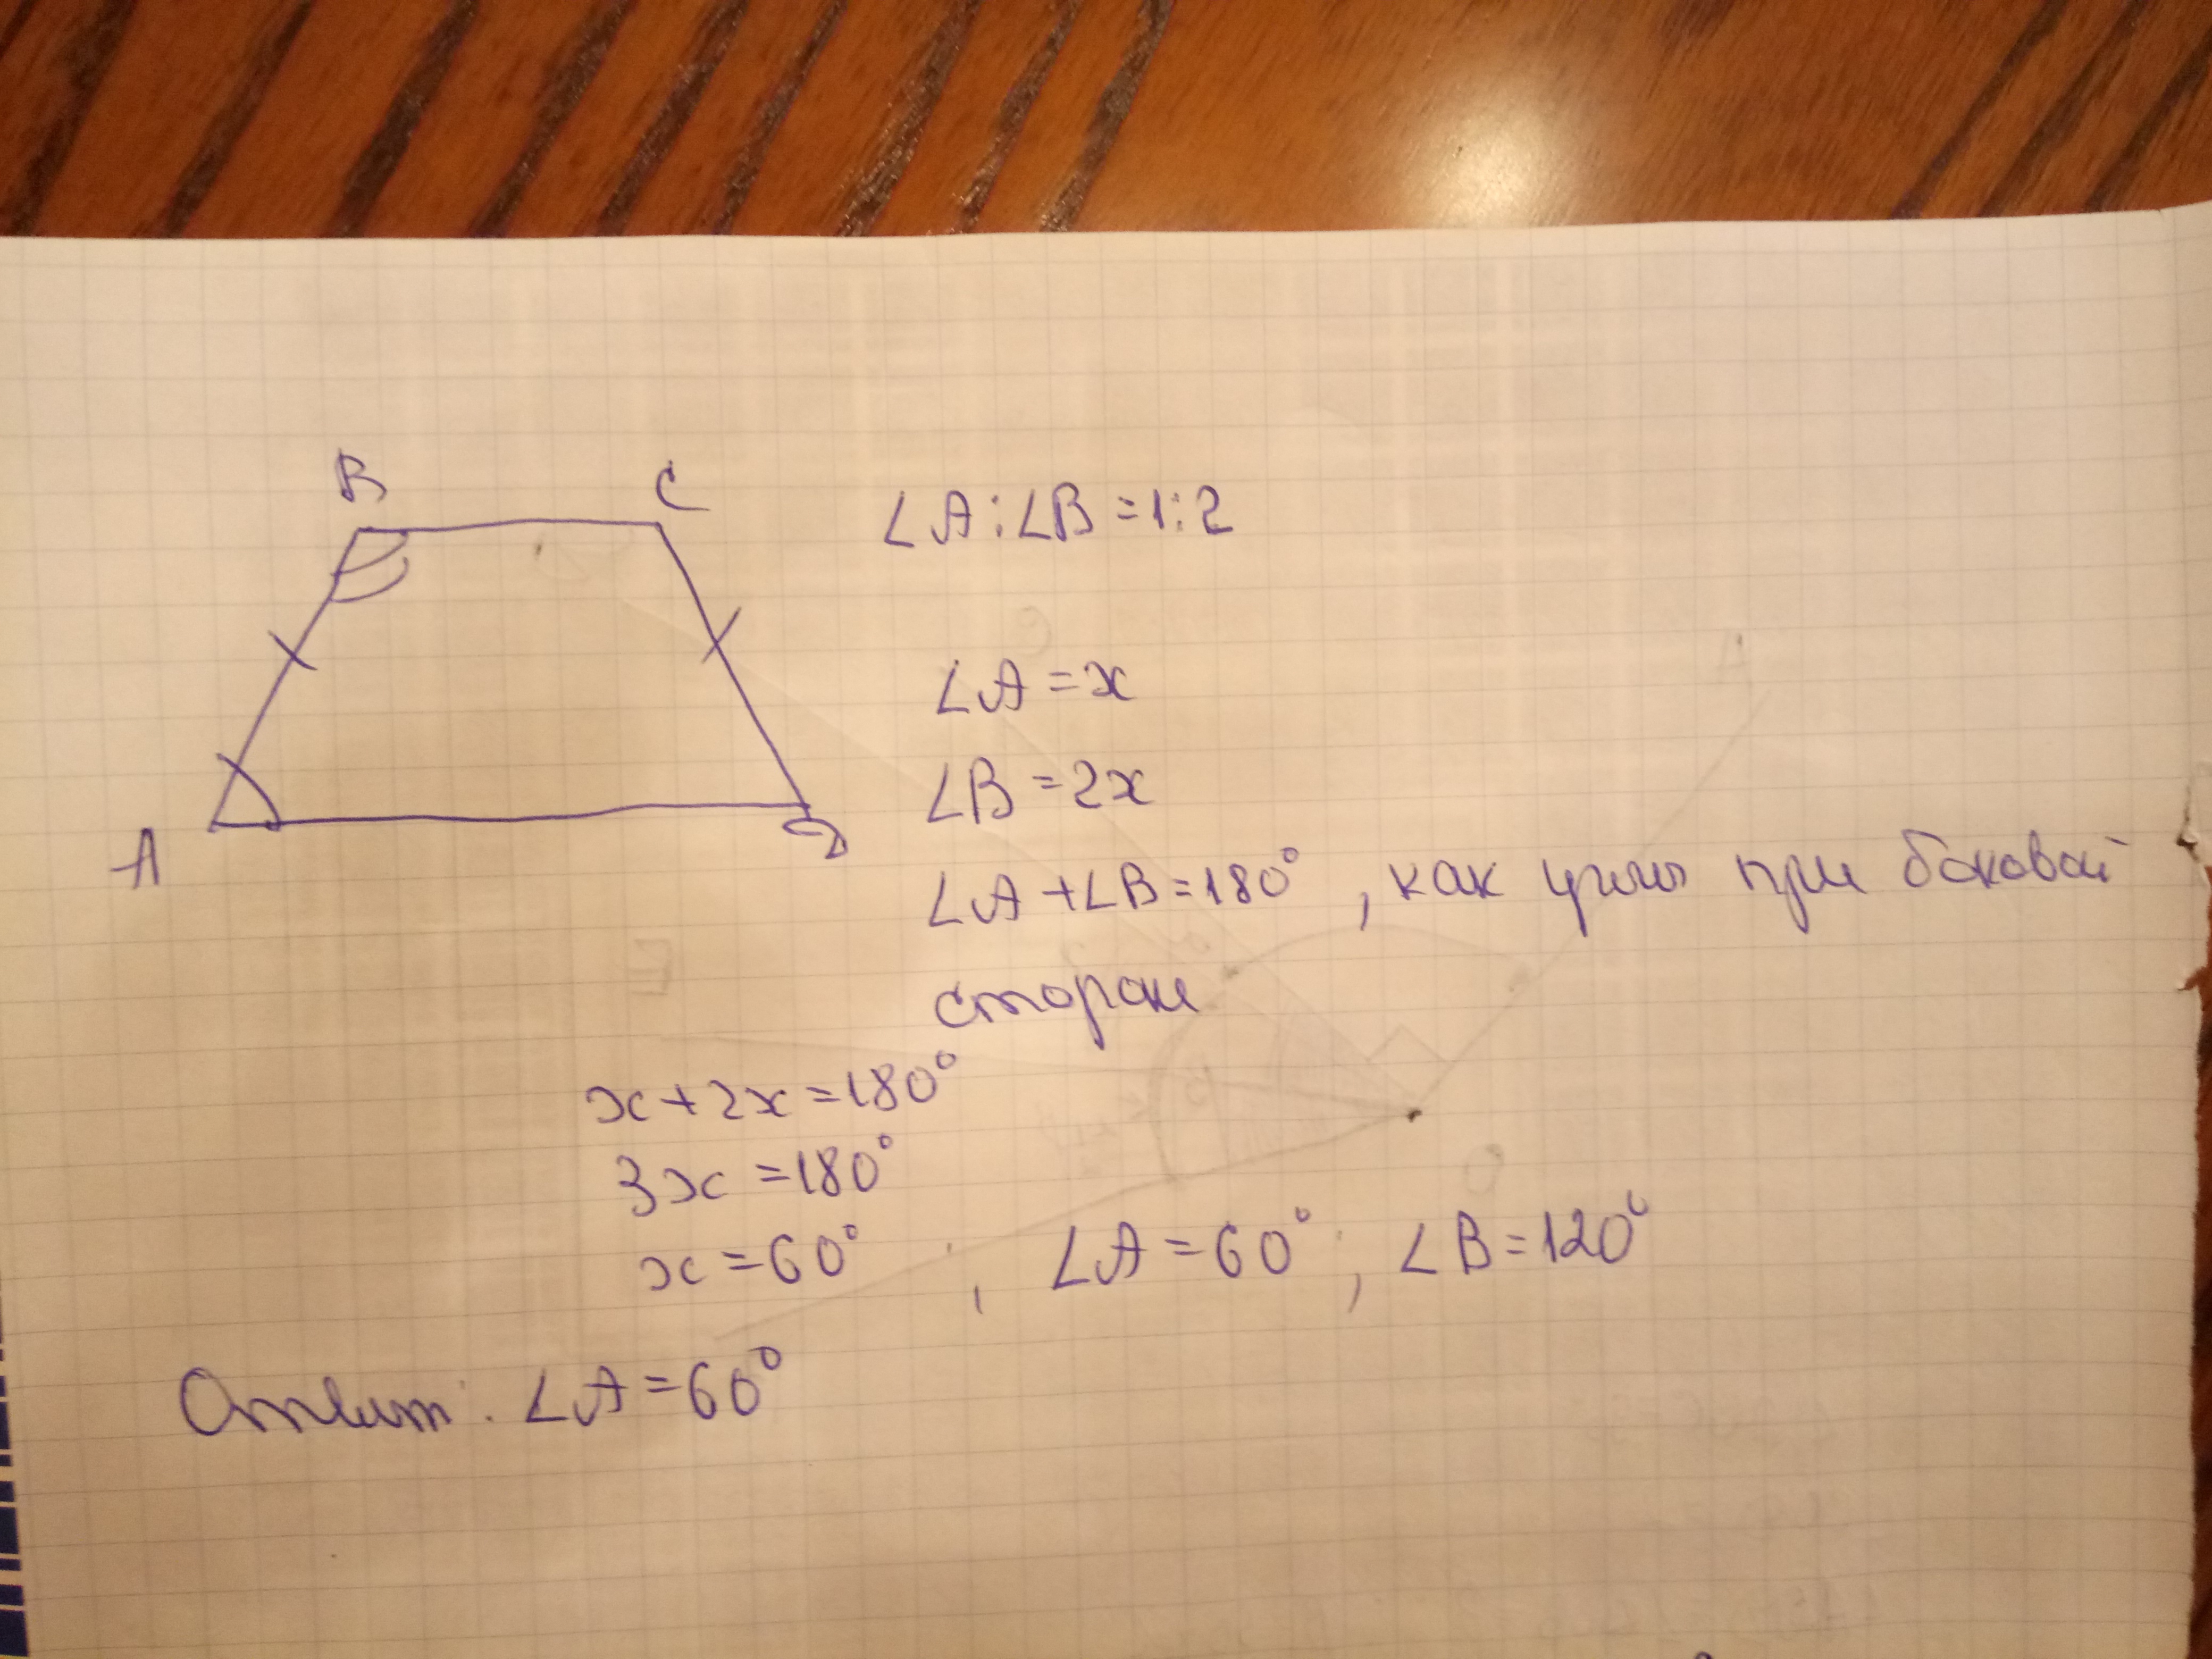 B C
∠A:∠B=1:2
∠A=x
∠B=2x
A D
∠A+∠B=180°, как углы при боковой
стороне
x+2x=180°
3x=180°
x=60°, ∠A=60°, ∠B=120°
Ответ: ∠A=60°